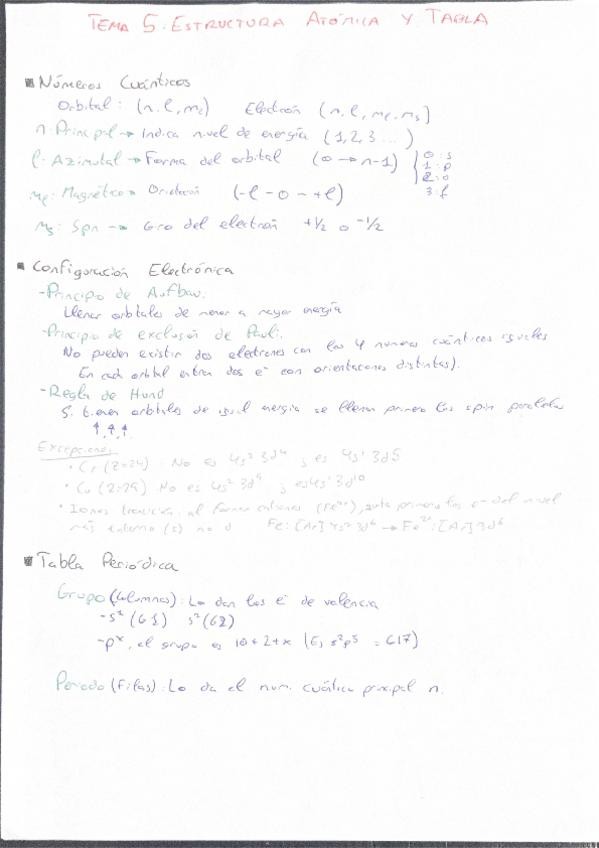 TEMA 5. ESTRUCTURA ATÓMICA Y TABLA
Números Cuánticos
Orbital: (n, l, ml) Electrón (n, l, ml, ms]
n: Principal → Indica nivel de energía (1, 2, 3 ...)
l: Azimutal → Forma del orbital (0 → n-1)
0: s
1: p
2: d
3: f
ml: Magnético → Orientación (-l - 0 - +l)
ms: Spin → Giro del electrón +1/2 o -1/2
Configuración Electrónica
-Principio de Aufbau:
Llenar orbitales de menor a mayor energía
-Principio de exclusión de Pauli.
No pueden existir dos electrones con los 4 números cuánticos iguales
En cada orbital entran dos e- con orientaciones distintas).
-Regla de Hund
Si tienen orbitales de igual energía se llenan primero los spin paralelos
↑, ↑, ↑,
Excepciones
• Cr (Z=24): No es 4s² 3d⁴ ; es 4s¹ 3d⁵
• Cu (Z=29) No es 4s² 3d⁹ ; es 4s¹ 3d¹⁰
• Iones transición: al formar cationes (Fe²⁺), quita primero los e- del nivel
más externo (s) no d Fe: [Ar] 4s² 3d⁶ → Fe²⁺: [Ar] 3d⁶
Tabla Periódica
Grupo (Columnas): Lo dan los e- de valencia
-s¹ (G1) s² (G2)
-pˣ, el grupo es 10+2+x (Ej s²p⁵ = G17)
Periodo (Filas): Lo da el num. cuántico principal n.